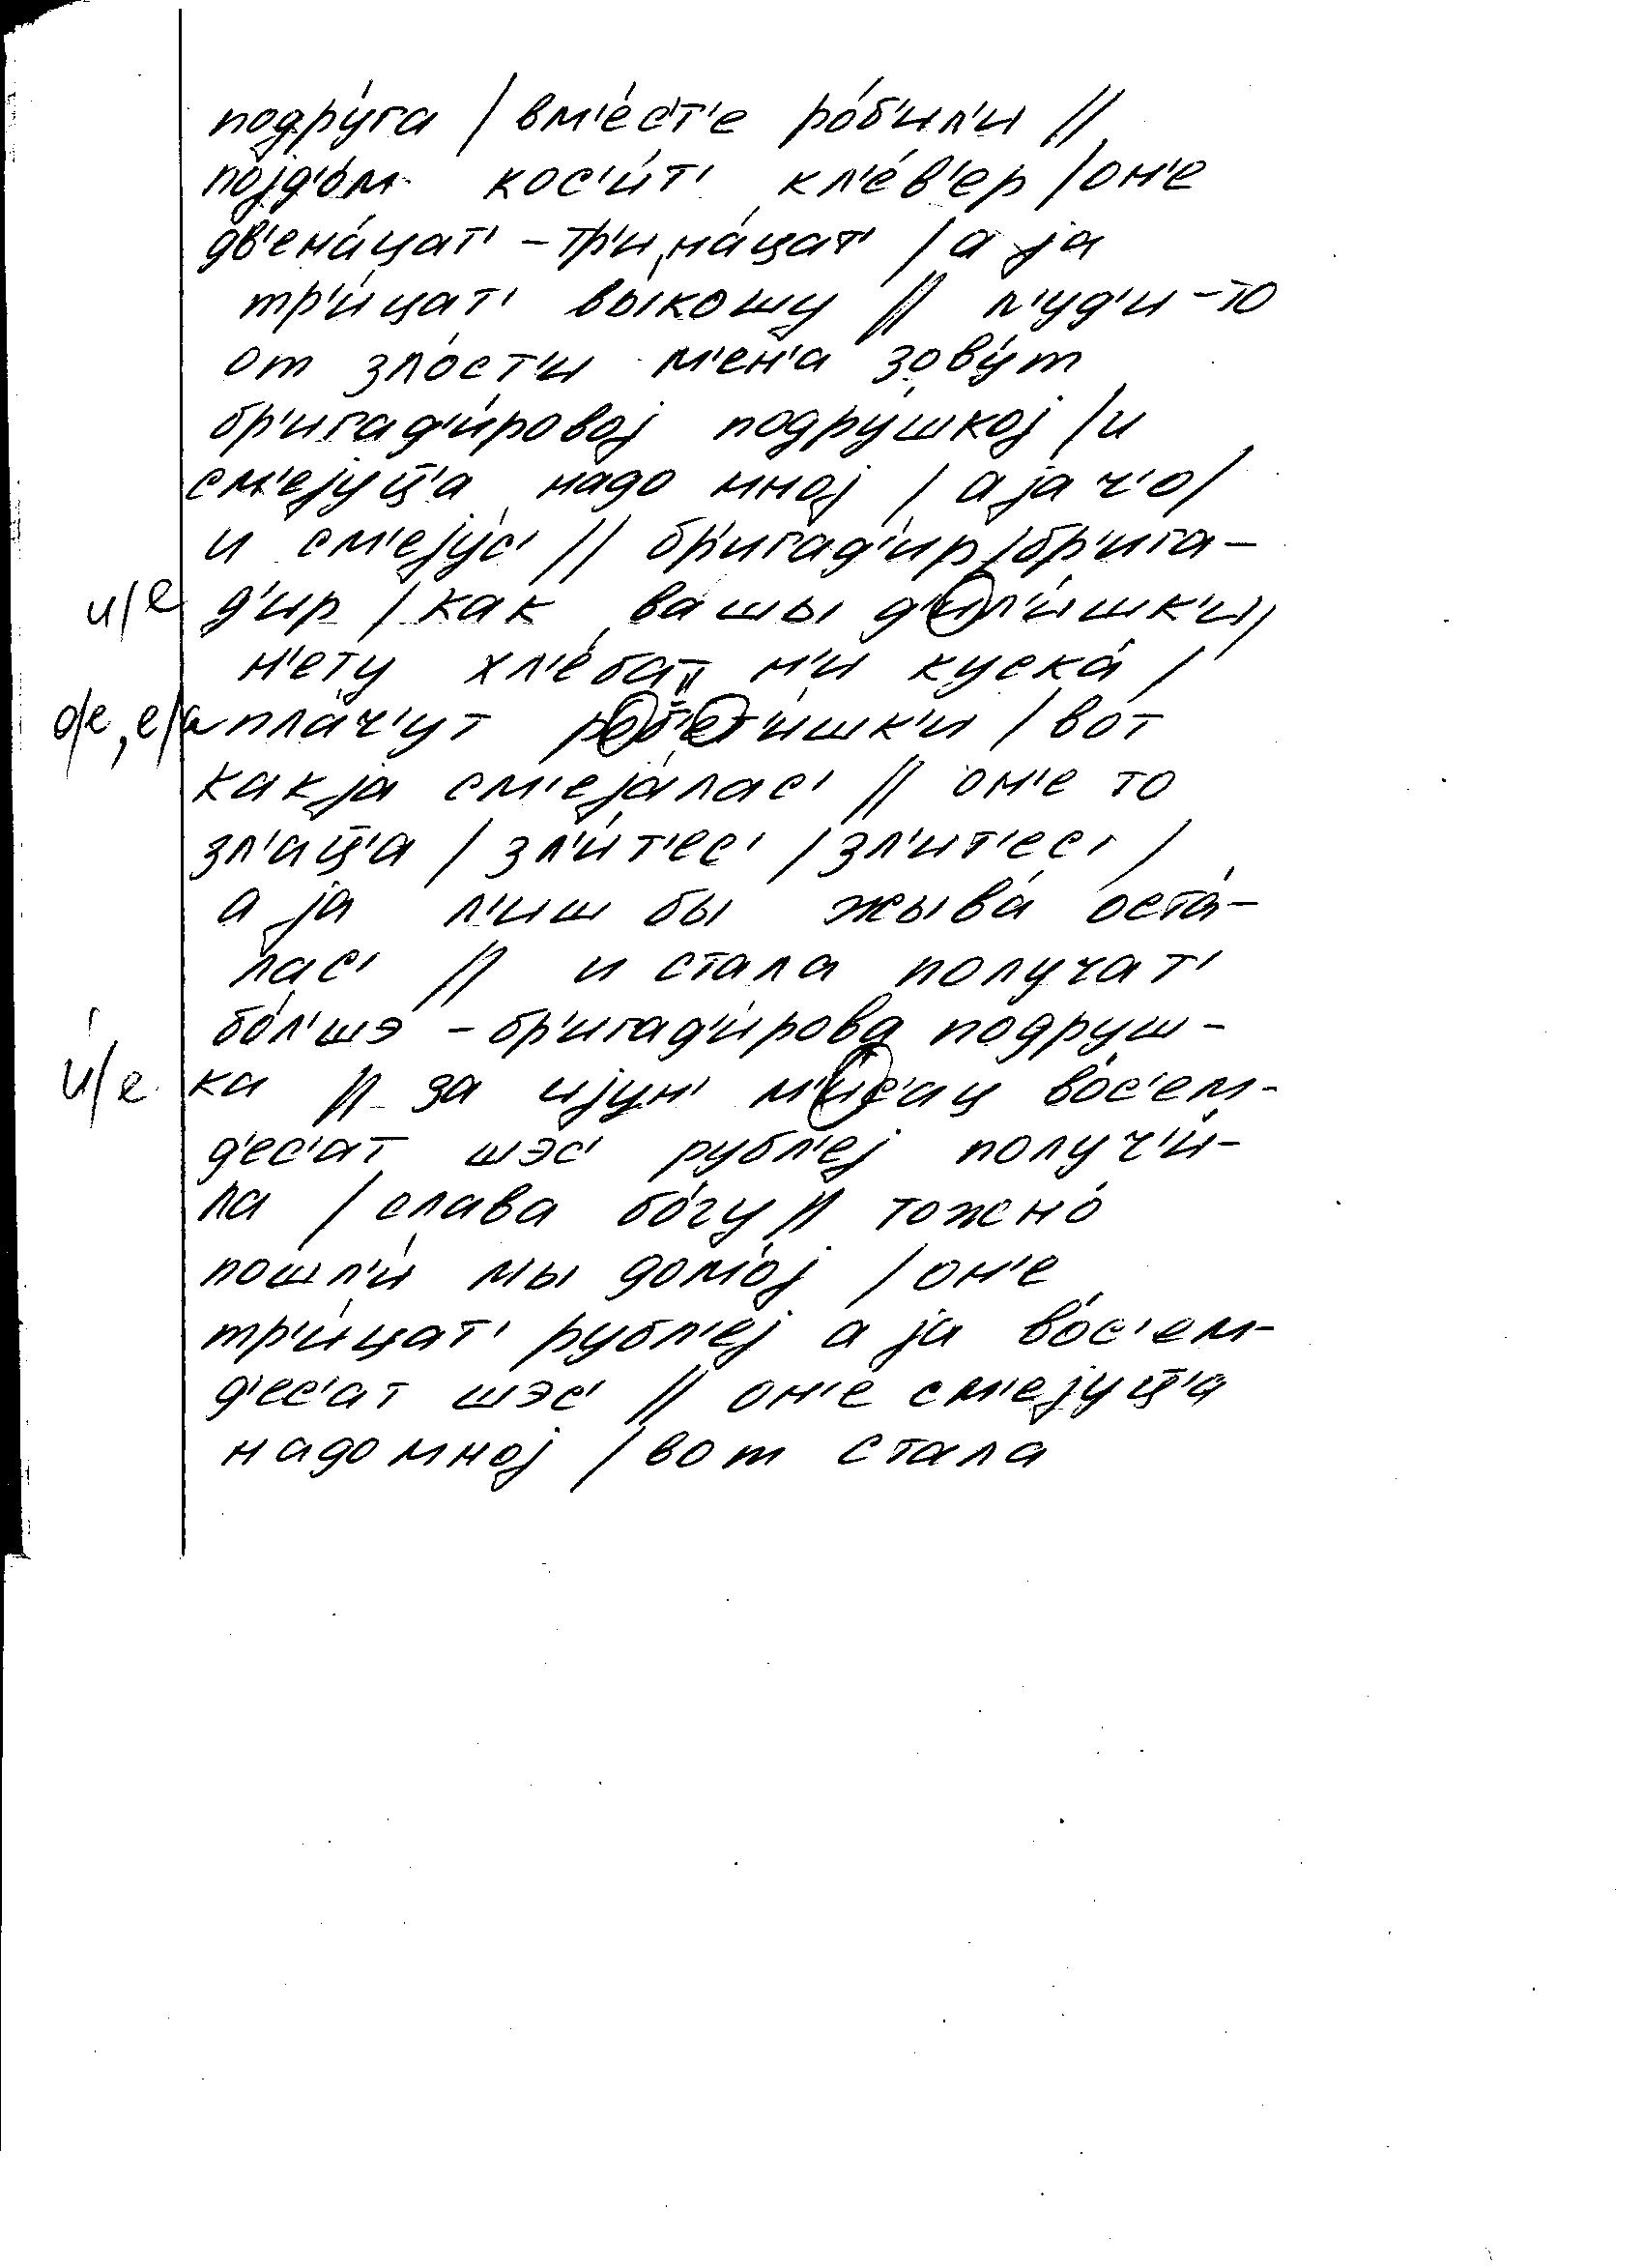 подру́га / вм'е́с'т'е ро́б'ил'и //
појд'о́м кос'и́т' кл'е́в'ер / он'е
дв'ена́цат' – тр'ина́цат' / а ја
тр'и́цат' вы́кошу // л'уд'и – то
от зло́ст'и м'ен'а зову́т
бр'игад'и́ровој подру́шкој / и
см'ејуц̄'а надо мној / а ја ч'о /
и см'еју́с' // бр'игад'ир / бр'ига–
и/е д'ир / как вашы д'ил'и́шк'и /
н'ету хл'е́ба н'и куска́ /
о/е, е/а пла́ч'ут роб'ет'и́шк'и / вот
как ја см'еја́лас' // он'е то
зл'ац̄'а / зл'и́т'ес' / зл'ит'ес' /
а ја л'иш бы жыва́ оста́–
лас' // и стала получат'
бо́л'шэ – бр'игад'и́рова подруш–
и́/е ка // за ијун' м'и́с'ац во́с'ем–
д'ес'ат шэс' рубл'еј получ'и́–
ла / слава бо́гу // тожно́
пошл'и́ мы домо́ј / он'е
тр'и́цат' рубл'еј а ја во́с'ем–
д'ес'ат шэс' // он'е́ см'ејуц̄'а
надо мној / вот стала